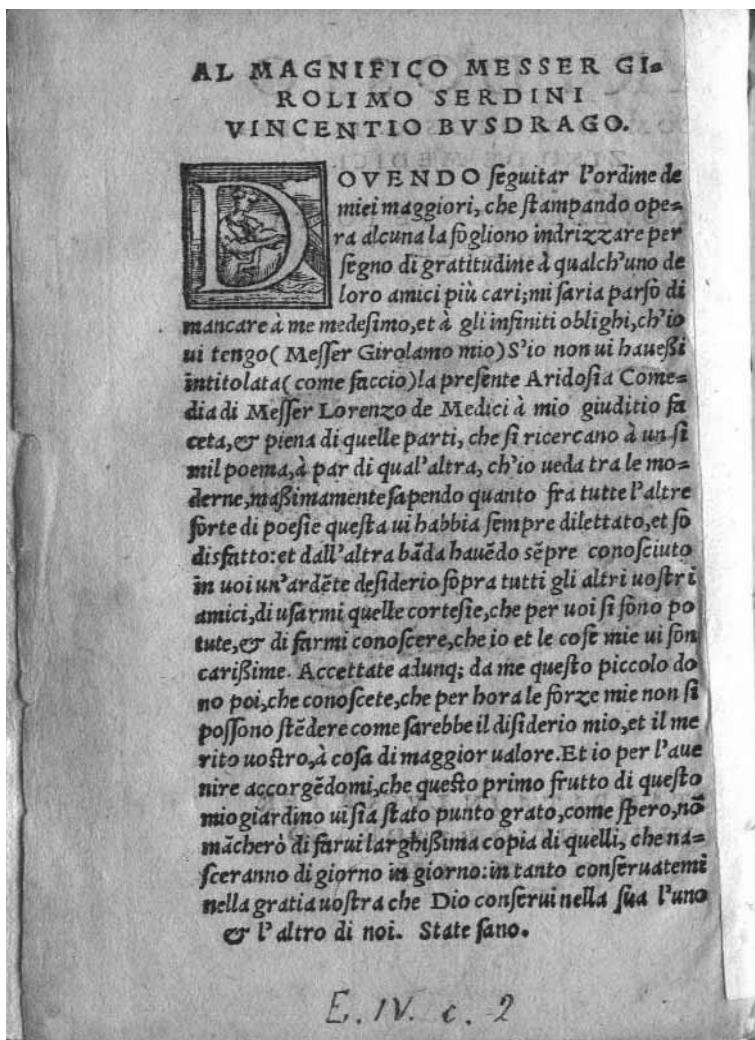 AL MAGNIFICO MESSER GI-
ROLIMO SERDINI
VINCENTIO BVSDRAGO.
DOVENDO ſeguitar l'ordine de
miei maggiori, che ſtampando ope-
ra alcuna la ſogliono indrizzare per
ſegno di gratitudine à qualch'uno de
loro amici più cari; mi ſaria parſo di
mancare à me medeſimo, et à gli infiniti oblighi, ch'io
ui tengo (Meſſer Girolamo mio) S'io non ui haueßi
intitolata (come faccio) la preſente Aridoſia Come-
dia di Meſſer Lorenzo de Medici à mio giuditio fa
ceta, & piena di quelle parti, che ſi ricercano à un ſi
mil poema, à par di qual'altra, ch'io ueda tra le mo-
derne, maßimamente ſapendo quanto fra tutte l'altre
ſorte di poeſie queſta ui habbia ſempre dilettato, et ſo
disfatto: et dall'altra bāda hauēdo sēpre conoſciuto
in uoi un'ardēte deſiderio ſopra tutti gli altri uoſtri
amici, di uſarmi quelle corteſie, che per uoi ſi ſono po
tute, & di farmi conoſcere, che io et le coſe mie ui ſon
carißime. Accettate adunq; da me queſto piccolo do
no poi, che conoſcete, che per hora le forze mie non ſi
poſſono ſtēdere come ſarebbe il diſiderio mio, et il me
rito uoſtro, à coſa di maggior ualore. Et io per l'aue
nire accorgēdomi, che queſto primo frutto di queſto
mio giardino ui ſia ſtato punto grato, come ſpero, nō
mācherò di farui larghißima copia di quelli, che na-
ſceranno di giorno in giorno: in tanto conſeruatemi
nella gratia uoſtra che Dio conſerui nella ſua l'uno
& l'altro di noi. State ſano.
E. IV. c. 2